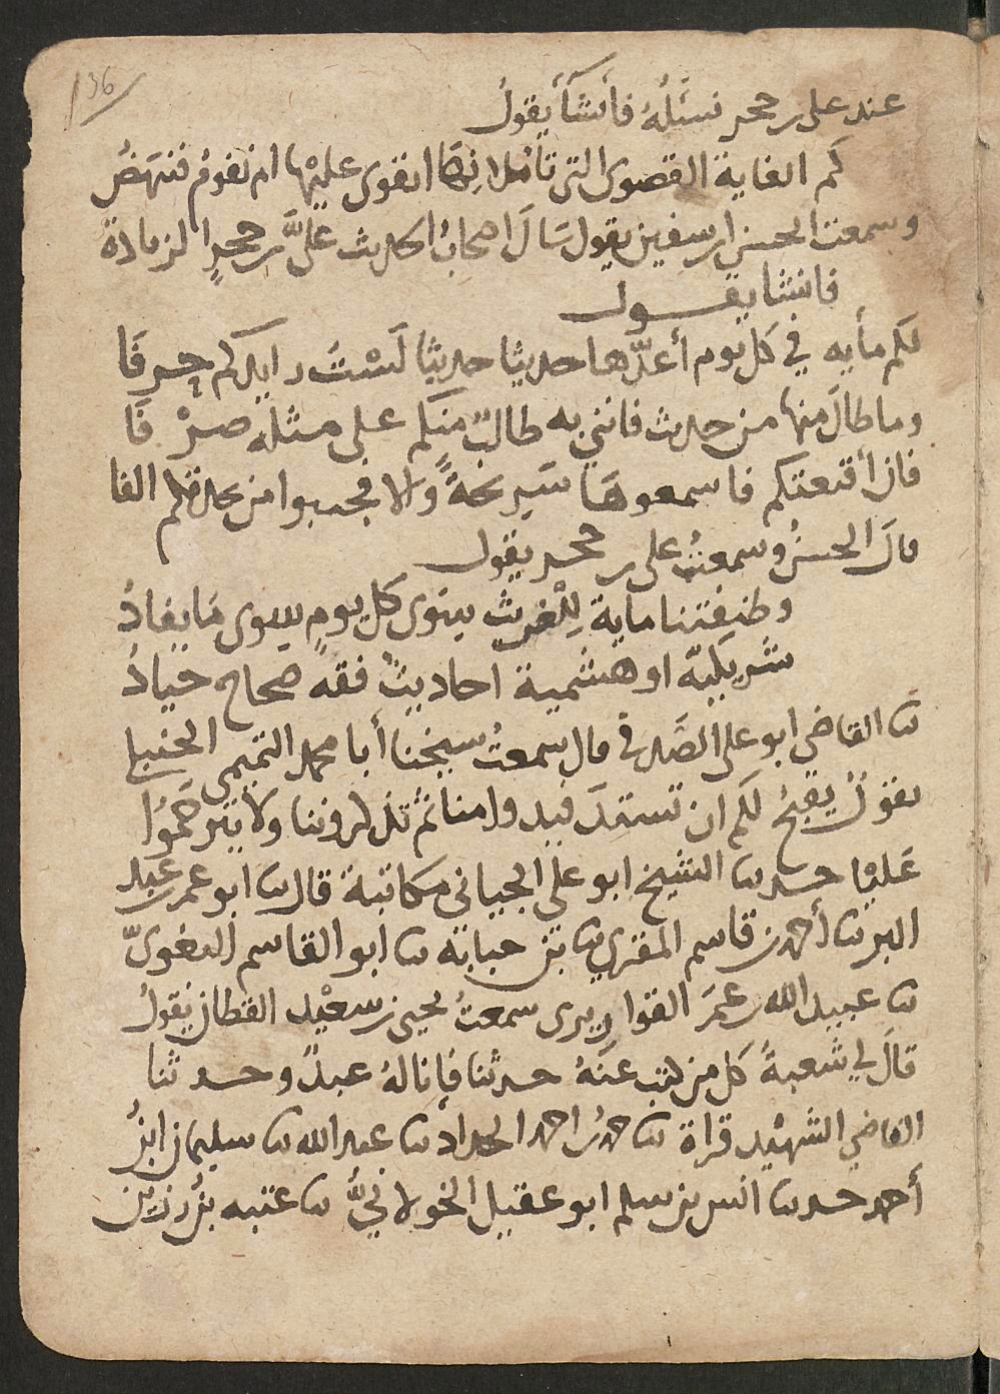 136
عند على بن حجر نسئله فأنشأ يقول
لكم الغاية القصوى التى تأملونها انقوى عليها ام نقوم فننهض
وسمعت الحسن بن سفين يقول سال اصحاب الحديث على بن حجر الزيادة
فانشا يقول
لكم مايه في كل يوم أعدها حديثا حديثا لست زايدكم حرفا
وما طال منها من حديث فانني به طالب منكم على مثله صرفا
فان أقنعتكم فاسمعوها سريحة والا فجيبوا من يحدثكم الفا
قال الحسن وسمعت على بن حجر يقول
وظيفتنا ماية للغريب ينوى كل يوم سوى ما يفاد
شريكية او هشمية احاديث فقه صحاح جياد
نا القاضي ابو على الصدفي قال سمعت شيخنا أبا محمد التميمي الحنبلي
يقول يقبح لكم ان تستفيدوا منا ثم تذكروننا ولا تترحموا
علينا حدثنا الشيخ ابو على الجياني مكاتبة قال نا ابو عمر بن عبد
البر نا أحمد بن قاسم المقرى نا بن حبابة نا ابو القاسم البغوي
نا عبيد الله بن عمر القواريرى سمعت يحيى بن سعيد القطان يقول
قال لي شعبة كل من كتب عنه حدثنا فانا له عبد وحدثنا
القاضي الشهيد قراة نا حمد بن احمد الحداد نا عبد الله نا سليمان ابن
أحمد حدثنا انس بن سلم ابو عقيل الخولاني نا عتبه بن رزين